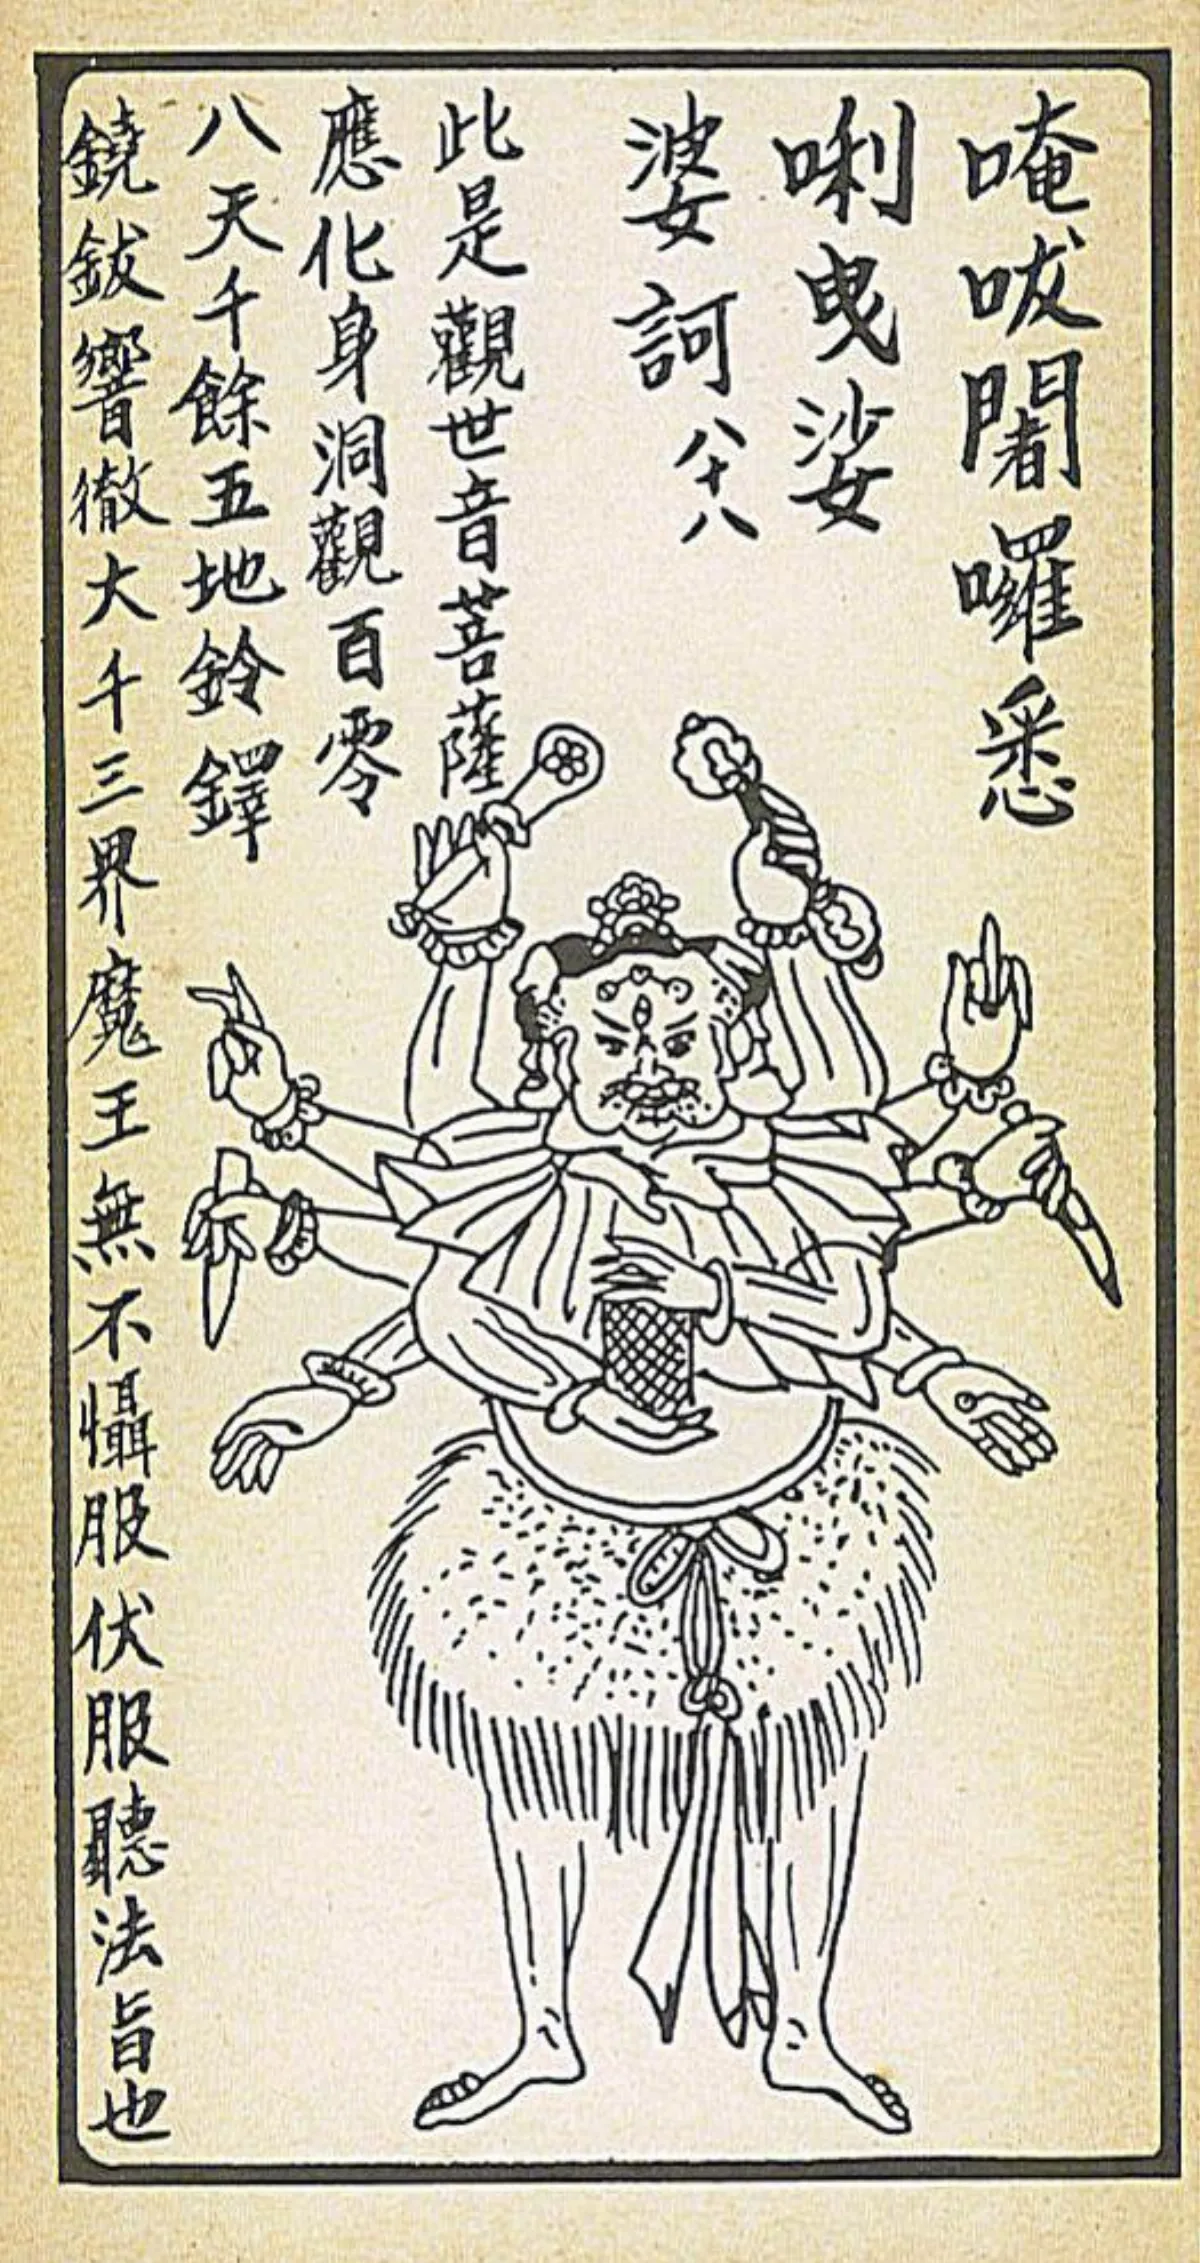 唵㕹闍囉悉
唎曳娑
婆訶 八十八
此是觀世音菩薩
應化身洞觀百零
八天千餘五地鈴鐸
鐃鈸響徹大千三界魔王無不懾服伏服聽法旨也